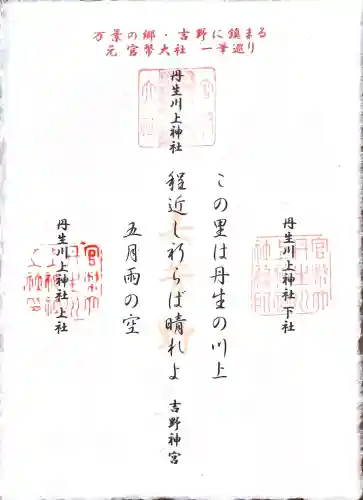 万葉の郷・吉野に鎮まる
元官幣大社 一筆巡り
丹生川上神社
丹生川上神社 下社
この里は丹生の川上
程近し祈らば晴れよ
五月雨の空
吉野神宮
丹生川上神社 上社